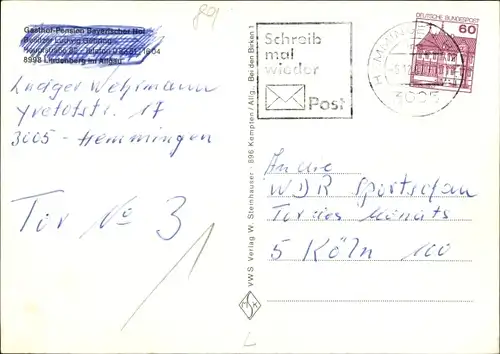 89
Gasthof-Pension Bayerischer Hof
8998 Lindenberg im Allgäu
Ludger Wehrmann
17
3005-Hemmingen
Tor No 3
VWS Verlag W. Steinhauser · 896 Kempten / Allg., Bei den Birken 1
Schreib
mal
wieder
Post
DEUTSCHE BUNDESPOST
60
3005
An die
WDR Sportschau
Tor des Monats
5 Köln 100